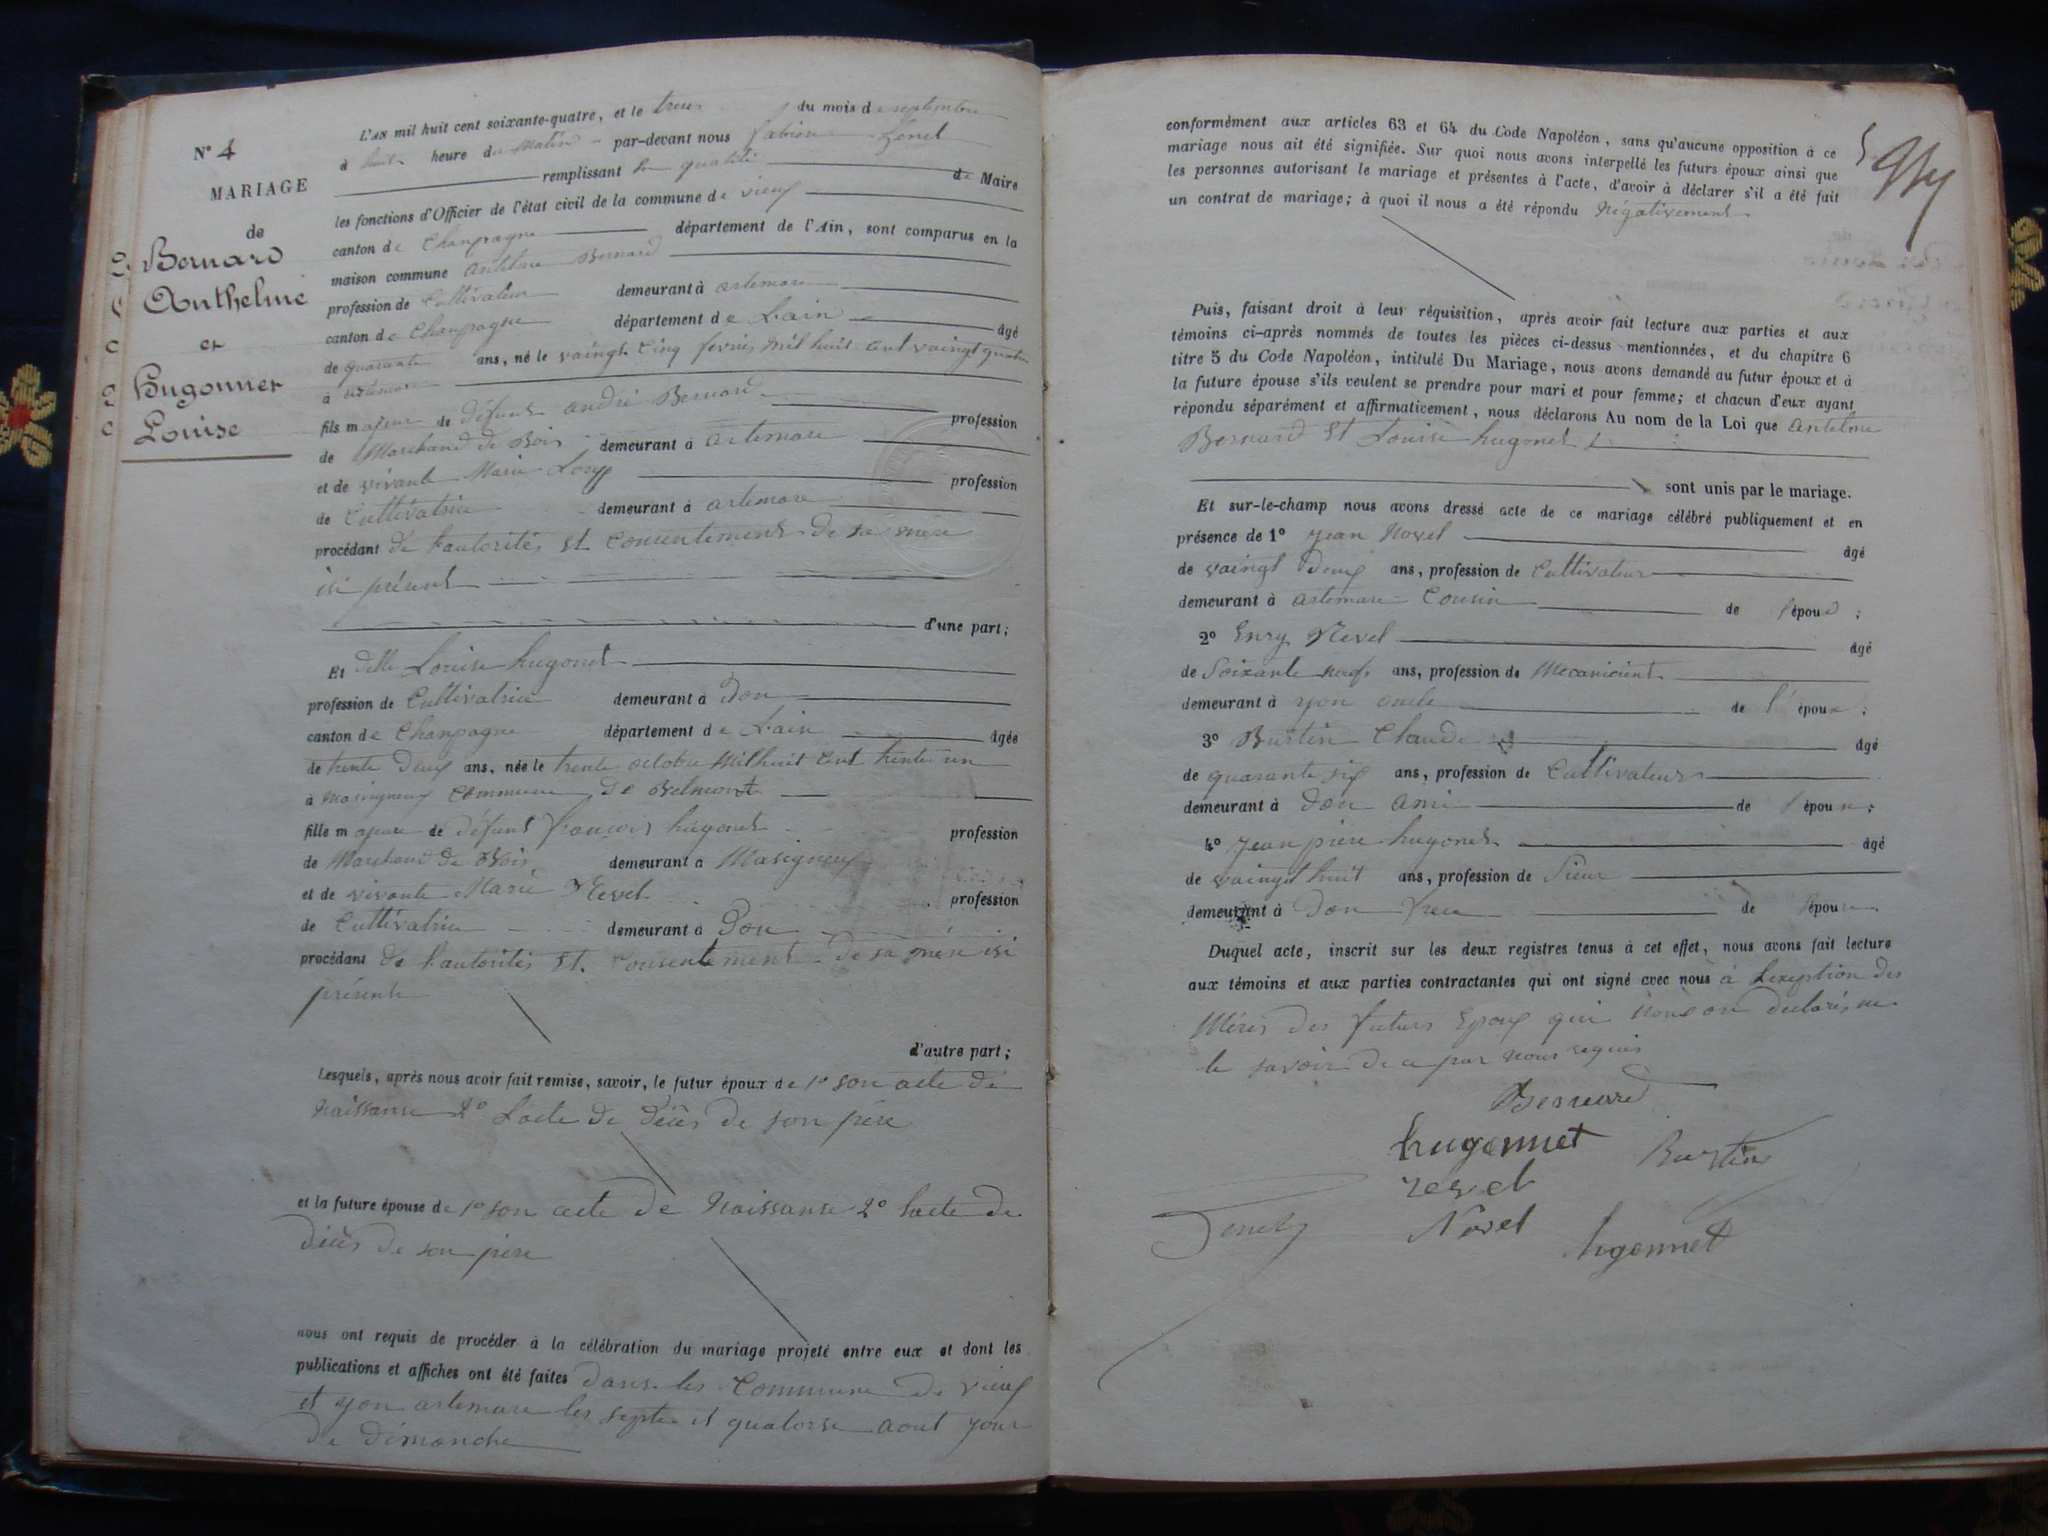 N° 4
MARIAGE
de
Bernard
Anthelme
et
Hugonnet
Louise
L'AN mil huit cent soixante-quatre, et le du mois de septembre
à huit heure du Matin par-devant nous fabien
remplissant en qualité de Maire
les fonctions d'Officier de l'état civil de la commune de vieuf
canton de Champagne département de l'Ain, sont comparus en la
maison commune antelme Bernard
profession de Cultivateur demeurant à artemare
canton de Champagne département de Lain âgé
de quarante ans, né le vaingt cinq fevrier Mil huit cent vaingt quatre
à artemare
fils majeur de défunt andré Bernard profession
de Marchand de Bois demeurant à artemare
et de vivante Marie profession
de Cultivatrice demeurant à artemare
procédant de Lautorités et Consentement de sa mère
isi présent
d'une part;
Et delle Louise hugonet
profession de Cultivatrice demeurant à Don
canton de Champagne département de Lain âgée
de trente deux ans, née le trente octobre Mil huit cent trente un
à Masigneuf Commune de Belmont
fille majeure de défunt françois hugonet profession
de Marchand de Bois demeurant à Masigneuf
et de vivante Marie Revel profession
de Cultivatrice demeurant à Don
procédant de Lautorités et Consentement de sa mère isi
présente
d'autre part;
Lesquels, après nous avoir fait remise, savoir, le futur époux de 1° son acte de
Naissanse 2° Lacte de déces de son père
et la future épouse de 1° son acte de Naissanse 2° lacte de
déces de son père
nous ont requis de procéder à la célébration du mariage projeté entre eux et dont les
publications et affiches ont été faites dans les Commune de vieuf
et yon artemare les septe et quatorse aout jour
de dimanche
conformément aux articles 63 et 64 du Code Napoléon, sans qu'aucune opposition à ce
mariage nous ait été signifiée. Sur quoi nous avons interpellé les futurs époux ainsi que
les personnes autorisant le mariage et présentes à l'acte, d'avoir à déclarer s'il a été fait
un contrat de mariage; à quoi il nous a été répondu Négativement
Puis, faisant droit à leur réquisition, après avoir fait lecture aux parties et aux
témoins ci-après nommés de toutes les pièces ci-dessus mentionnées, et du chapitre 6
titre 5 du Code Napoléon, intitulé Du Mariage, nous avons demandé au futur époux et à
la future épouse s'ils veulent se prendre pour mari et pour femme; et chacun d'eux ayant
répondu séparément et affirmativement, nous déclarons Au nom de la Loi que antelme
Bernard et Louise hugonet
sont unis par le mariage.
Et sur-le-champ nous avons dressé acte de ce mariage célébré publiquement et en
présence de 1° Jean Novel âgé
de vaingt deux ans, profession de Cultivateur
demeurant à artemare Cousin de l'époux;
2° Enry Revel âgé
de Soixante neuf ans, profession de Mecanicient
demeurant à yon oncle de l'épouse;
3° Burtin Claude âgé
de quarante six ans, profession de Cultivateur
demeurant à Don Ami de l'épouse;
4° Jean piere hugonet âgé
de vaingt huit ans, profession de
demeurant à Don frere de l'épouse.
Duquel acte, inscrit sur les deux registres tenus à cet effet, nous avons fait lecture
aux témoins et aux parties contractantes qui ont signé avec nous à Lexeption des
Méres des futurs Epoux qui nous on declarés ne
le savoir de ce par nous requis
Bernard
hugonnet
Burtin
revel
Novel
hugonnet